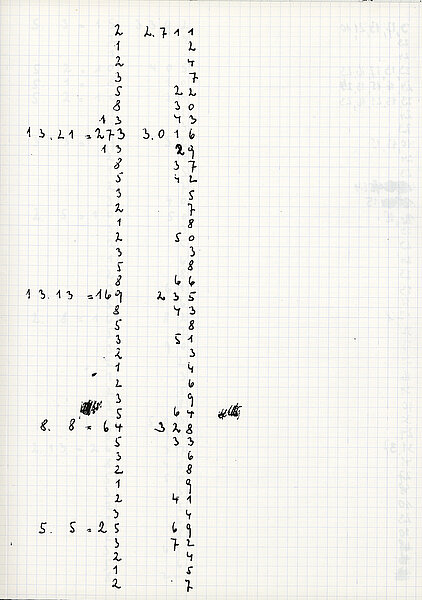 2 2.711
1 2
2 4
3 7
5 22
8 30
13 43
13.21=273 3.016
13 29
8 37
5 42
3 5
2 7
1 8
2 50
3 3
5 8
8 66
13.13=169 235
8 43
5 8
3 51
2 3
1 4
2 6
3 9
5 64
8.8=64 328
5 33
3 6
2 8
1 9
2 41
3 4
5.5=25 69
3 72
2 4
1 5
2 7